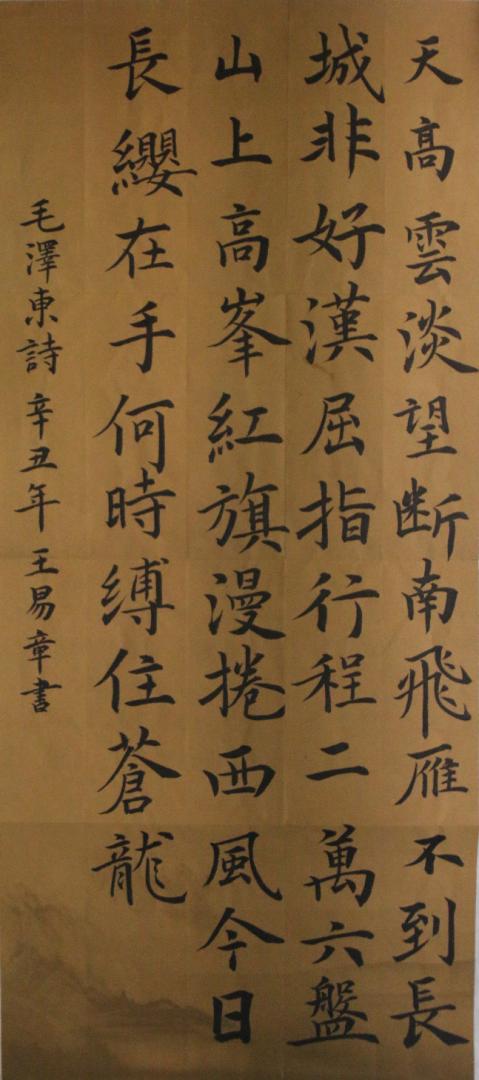 天高雲淡望断南飛雁不到長
城非好漢屈指行程二萬六盤
山上高峯紅旗漫捲西風今日
長纓在手何時縛住蒼龍
毛澤東詩辛丑年王易章書